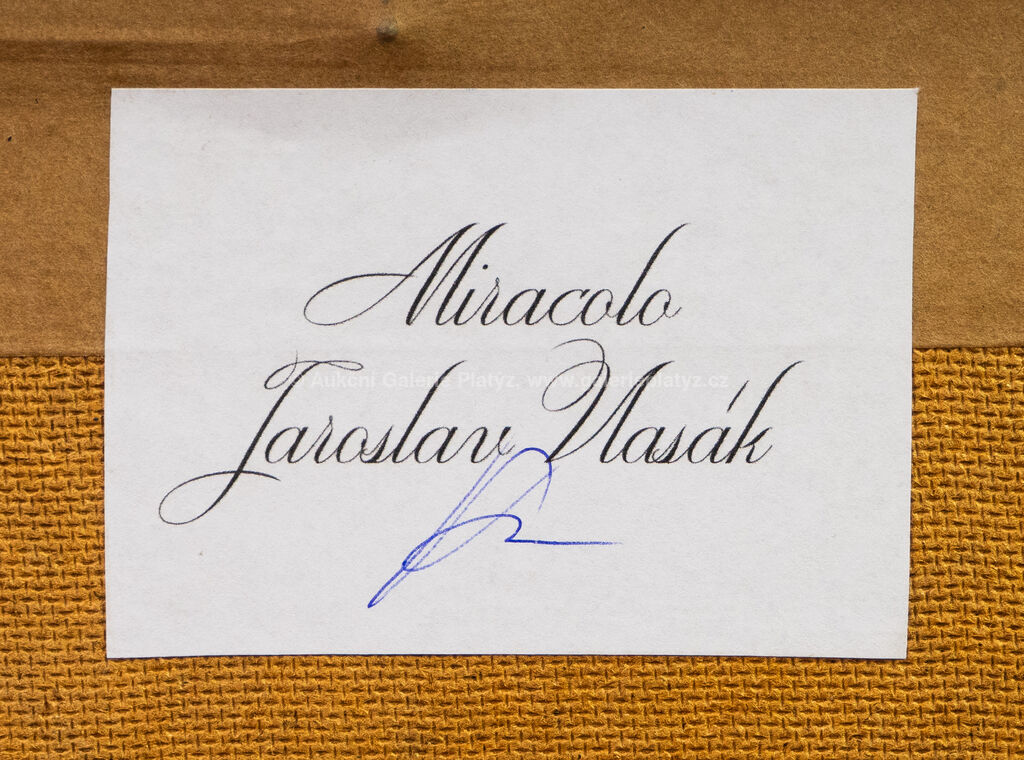 Miracolo
© Aukční Galerie Platýz, www.galerieplatyz.cz
Jaroslav Vlasák